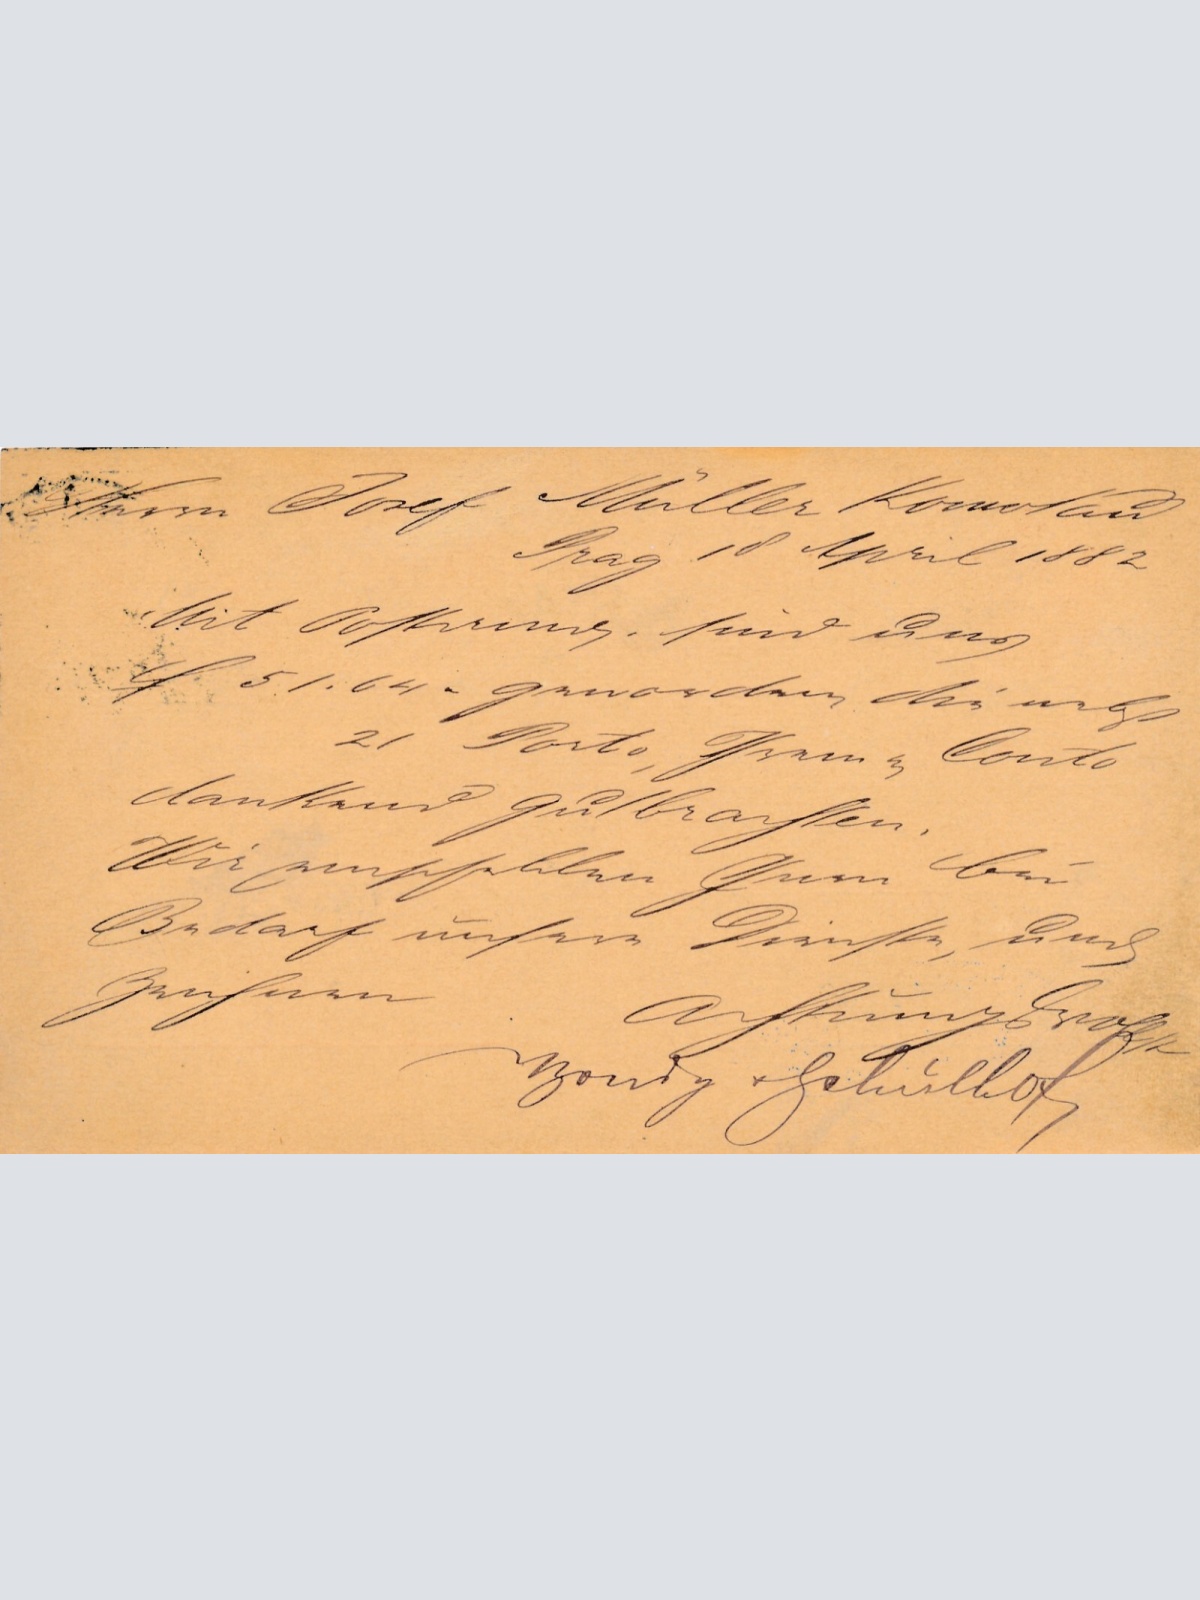 Herrn Josef Müller Komotau
Prag 18 April 1882
Mit Postanw. sind uns
f 51.64 - geworden die nebst
21 Porto, Ihrem Conto
dankend gutbrachten.
Wir empfehlen Ihnen bei
Bedarf unsere Dienste, und
zeichnen
Achtungsvollst
& Schulhof